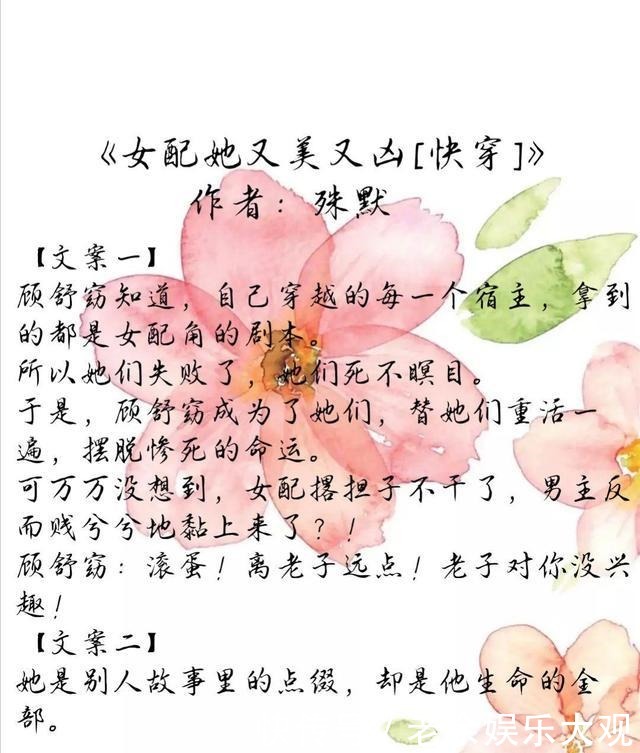 《女配她又美又凶[快穿]》
作者：殊默
【文案一】
顾舒窈知道，自己穿越的每一个宿主，拿到
的都是女配角的剧本。
所以她们失败了，她们死不瞑目。
于是，顾舒窈成为了她们，替她们重活一
遍，摆脱惨死的命运。
可万万没想到，女配撂担子不干了，男主反
而贱兮兮地黏上来了？！
顾舒窈：滚蛋！离老子远点！老子对你没兴
趣！
【文案二】
她是别人故事里的点缀，却是他生命的全
部。
娱乐大观